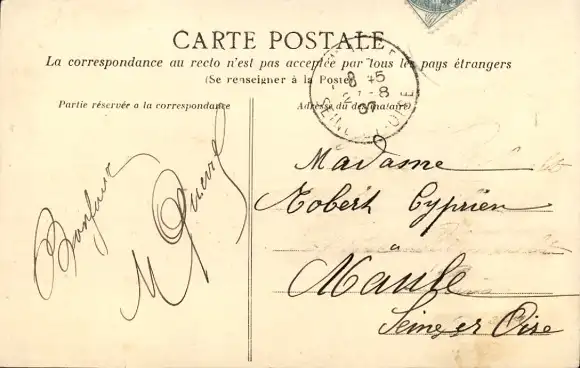 CARTE POSTALE
La correspondance au recto n'est pas acceptée par tous les pays étrangers
(Se renseigner à la Poste)
Partie réservée a la correspondance
Adresse du destinataire
8 45
2-8
07
SEINE-ET-OISE
Madame
Robert Cyprien
à
Maule
Seine et Oise
M